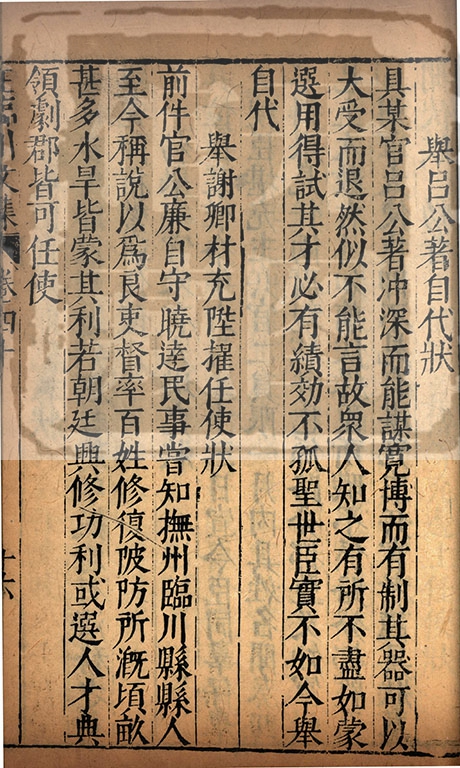 舉呂公著自代狀
具某官呂公著冲深而能謀寬博而有制其器可以
大受而退然似不能言故衆人知之有所不盡如蒙
選用得試其才必有績効不孤聖世臣實不如今舉
自代
舉謝卿材充陞擢任使狀
前件官公廉自守曉達民事嘗知撫州臨川縣縣人
至今稱說以爲良吏督率百姓修復陂防所溉頃畝
甚多水旱皆蒙其利若朝廷興修功利或選人才典
領劇郡皆可任使
臨川文集 卷四十 十六